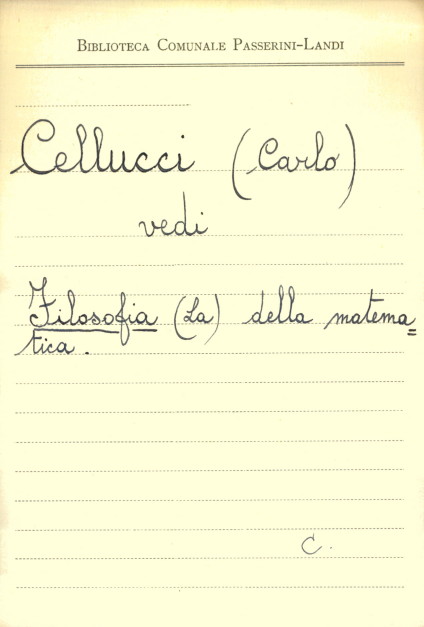 BIBLIOTECA COMUNALE PASSERINI-LANDI
Cellucci (Carlo)
vedi
Filosofia (La) della matema=
tica.
C.